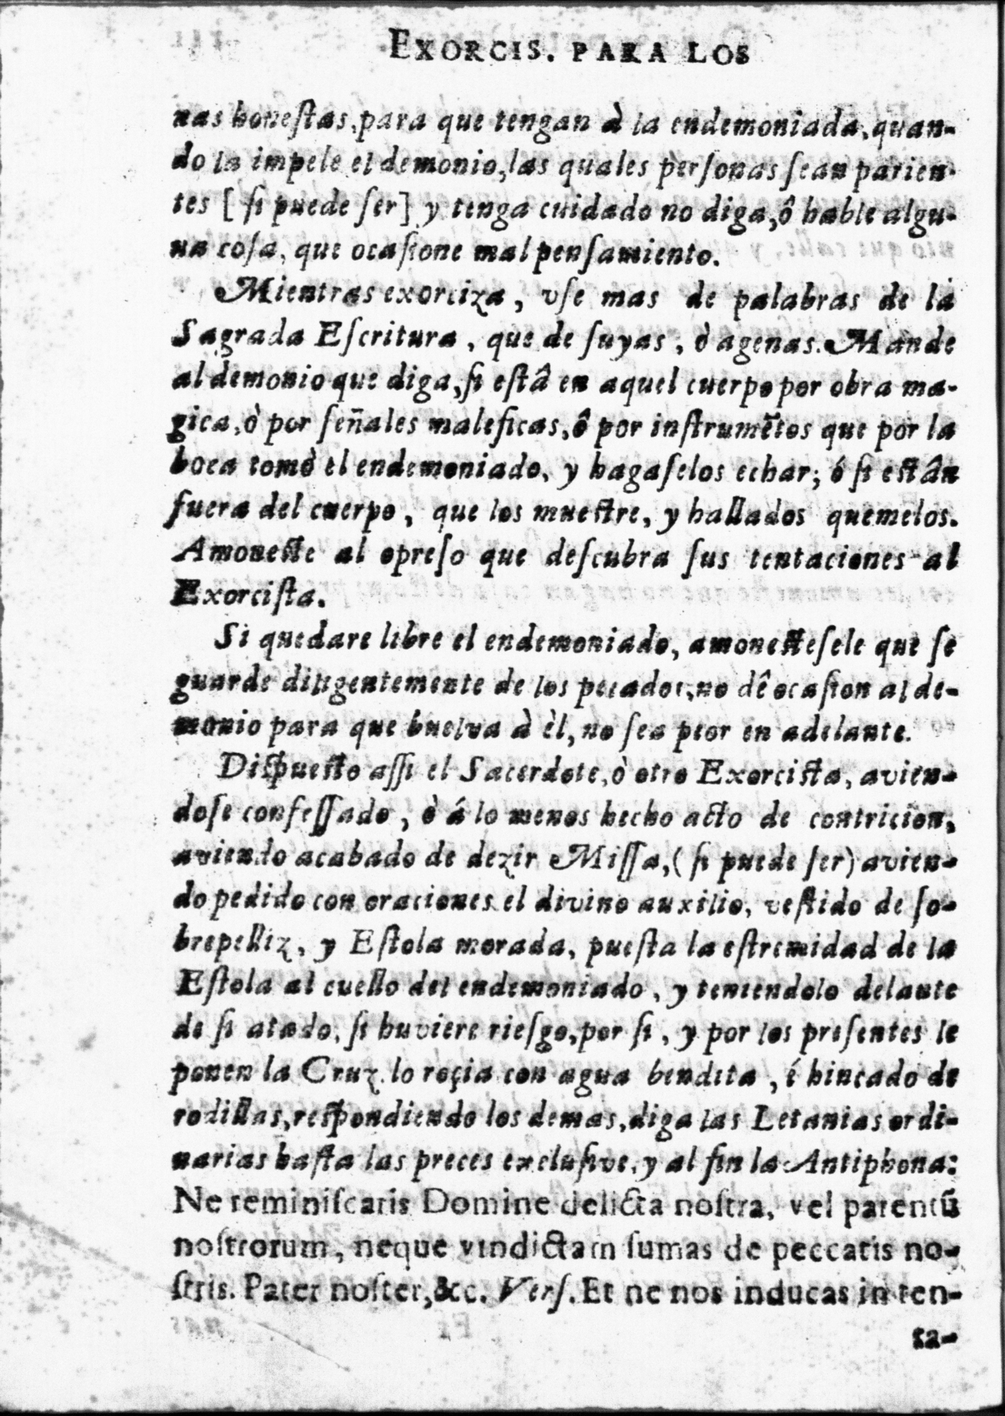 EXORCIS. PARA LOS
nas honeſtas, para que tengan à la endemoniada, quan-
do la impele el demonio, las quales perſonas ſean parien-
tes [ ſi puede ſer] y tenga cuidado no diga, ô hable algu-
na coſa, que ocaſione mal penſamiento.
Mientras exorciza, vſe mas de palabras de la
Sagrada Eſcritura, que de ſuyas, ò agenas. Mande
al demonio que diga, ſi eſtâ en aquel cuerpo por obra ma-
gica, ò por ſeñales maleficas, ô por inſtrumẽtos que por la
boca tomò el endemoniado, y hagaſelos echar; ó ſi eſtân
fuera del cuerpo, que los mueſtre, y hallados quemelos.
Amoneſte al opreſo que deſcubra ſus tentaciones al
Exorciſta.
Si quedare libre el endemoniado, amoneſteſele que ſe
guarde diligentemente de los pecados, no dê ocaſion al de-
monio para que buelva à èl, no ſea peor en adelante.
Diſpueſto aſſi el Sacerdote, ò otro Exorciſta, avien-
doſe confeſſado, ò á lo menos hecho acto de contricion,
aviendo acabado de dezir Miſſa, ( ſi puede ſer) avien-
do pedido con oraciones el divino auxilio, veſtido de ſo-
brepelliz, y Eſtola morada, pueſta la eſtremidad de la
Eſtola al cuello del endemoniado, y teniendolo delante
de ſi atado, ſi huviere rieſgo, por ſi, y por los preſentes le
ponen la Cruz. lo roçia con agua bendita, é hincado de
rodillas, reſpondiendo los demas, diga las Letanias ordi-
narias haſta las preces excluſive, y al fin la Antiphona:
Ne reminiſcaris Domine delicta noſtra, vel parentũ
noſtrorum, neque vindictam ſumas de peccatis no-
ſtris. Pater noſter, &c. Verſ. Et ne nos inducas in ten-
ta-